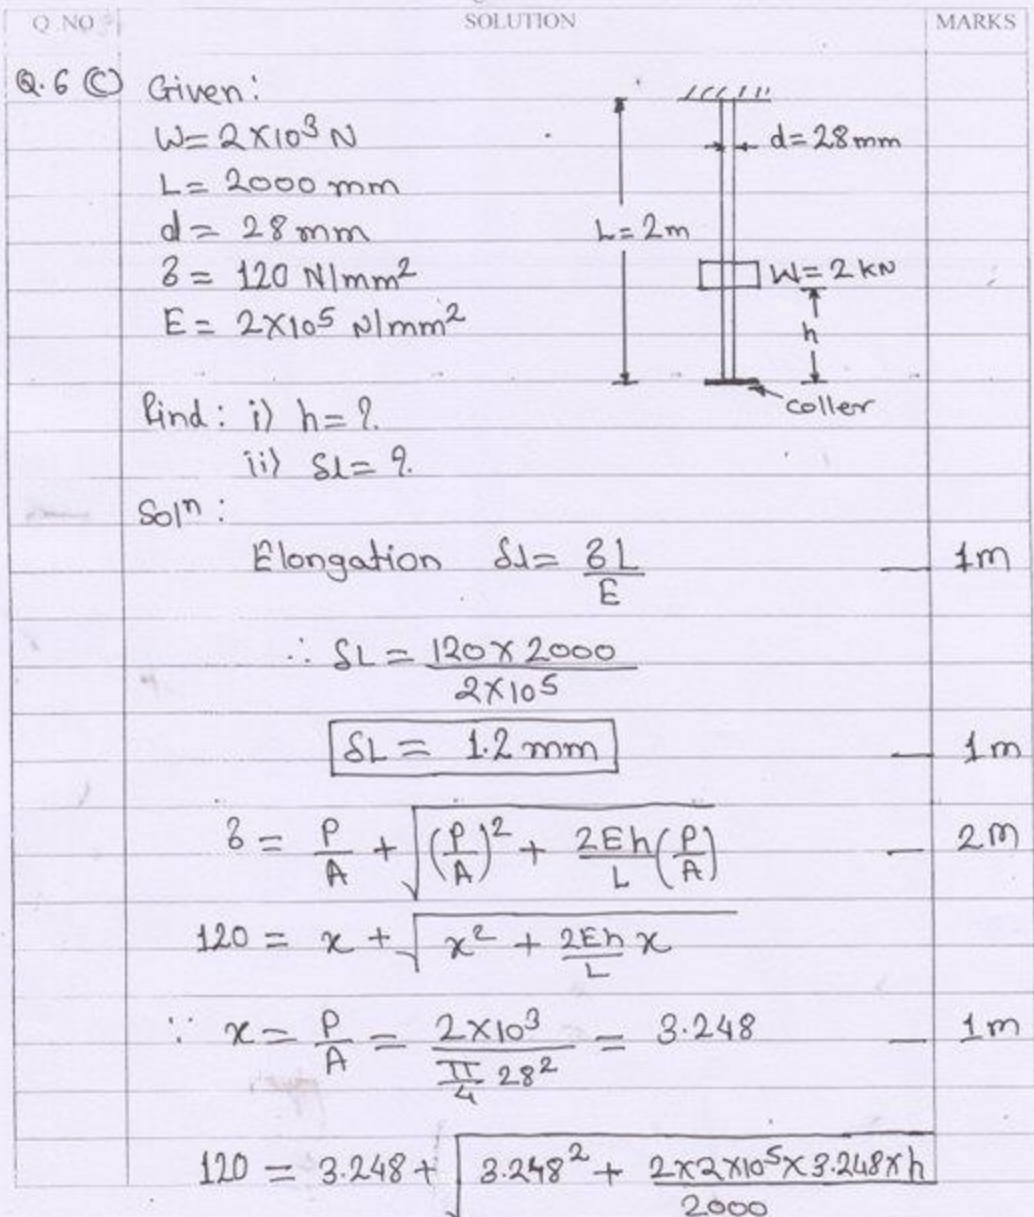 Q. NO SOLUTION MARKS
Q.6 (C) Given:
W = 2×10³ N
L = 2000 mm
d = 28 mm
δ = 120 N/mm²
E = 2×10⁵ N/mm²
d = 28 mm
L = 2m
W = 2 kN
h
coller
Find : i) h = ?
ii) δl = ?
Solⁿ :
Elongation δl = δL/E — 1m
∴ δL = 120 × 2000 / 2×10⁵
δL = 1.2 mm — 1m
δ = P/A + √((P/A)² + 2Eh/L (P/A)) — 2m
120 = x + √(x² + 2Eh/L x)
∵ x = P/A = 2×10³ / (π/4 28²) = 3.248 — 1m
120 = 3.248 + √(3.248² + 2×2×10⁵×3.248×h / 2000)